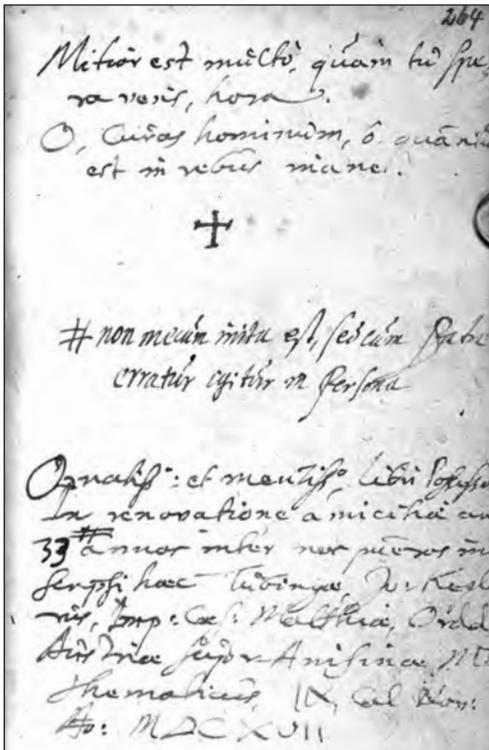 264
Mitior est multò, quàm tu spe
ra veris, hora.
O, Curas hominum, ô quantu
est in rebus inane.
# non mecum inita est, sed cum Patre
erratur igitur in Persona
Ornatiss: et libri
In renovatione amicitiae an
33 annos inter nos in
scripsi haec Tubingae, Jo: Kepl
rus, Imp: Caes: Matthiae, Ordd
Austriae supor-Anisinae Ma
thematicus, IX, Cal Nov:
Ao: MDCXVII